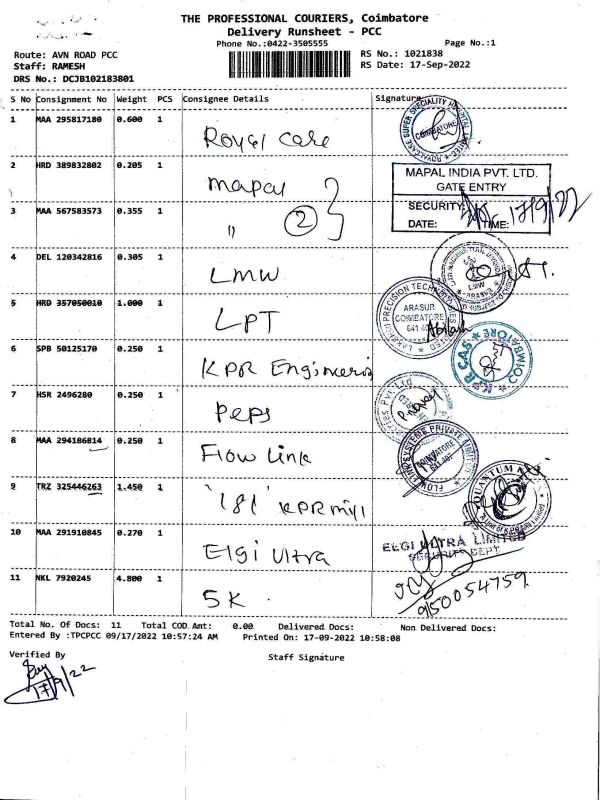 THE PROFESSIONAL COURIERS, Coimbatore
Delivery Runsheet - PCC
Phone No.:0422-3505555
Page No.:1
Route: AVN ROAD PCC
RS No.: 1021838
Staff: RAMESH
RS Date: 17-Sep-2022
DRS No.: DCJB102183801
S No Consignment No Weight PCS Consignee Details Signature
1 MAA 295817180 0.600 1 Royal care
ROYALCARE SUPER SPECIALITY HOSPITAL LIMITED
COIMBATORE
2 HRD 389832802 0.205 1 Mapal
MAPAL INDIA PVT. LTD.
GATE ENTRY
SECURITY:
DATE: TIME:
17/9/22
3 MAA 567583573 0.355 1 " 2
4 DEL 120342816 0.305 1 LMW
LMW
5 HRD 357050010 1.000 1 LPT
LAKSHMI PRECISION TECHNOLOGIES LIMITED
ARASUR
COIMBATORE
641 407
Abilash
6 SPB 50125170 0.250 1 KPR Engineering
KPR CAS
COIMBATORE
7 HSR 2496280 0.250 1 Peps
Pvt Ltd
8 MAA 294186814 0.250 1 Flow Link
FLOW LINK SYSTEMS PRIVATE LIMITED
COIMBATORE
9 TRZ 325446263 1.450 1 '181' KPR mill
QUANTUM
10 MAA 291910845 0.270 1 Elgi Ultra
ELGI ULTRA LIMITED
SECURITY DEPT
11 NKL 7920245 4.800 1 5K
9150054759
Total No. Of Docs: 11 Total COD Amt: 0.00 Delivered Docs: Non Delivered Docs:
Entered By :TPCPCC 09/17/2022 10:57:24 AM Printed On: 17-09-2022 10:58:08
Verified By
Staff Signature
17/9/22